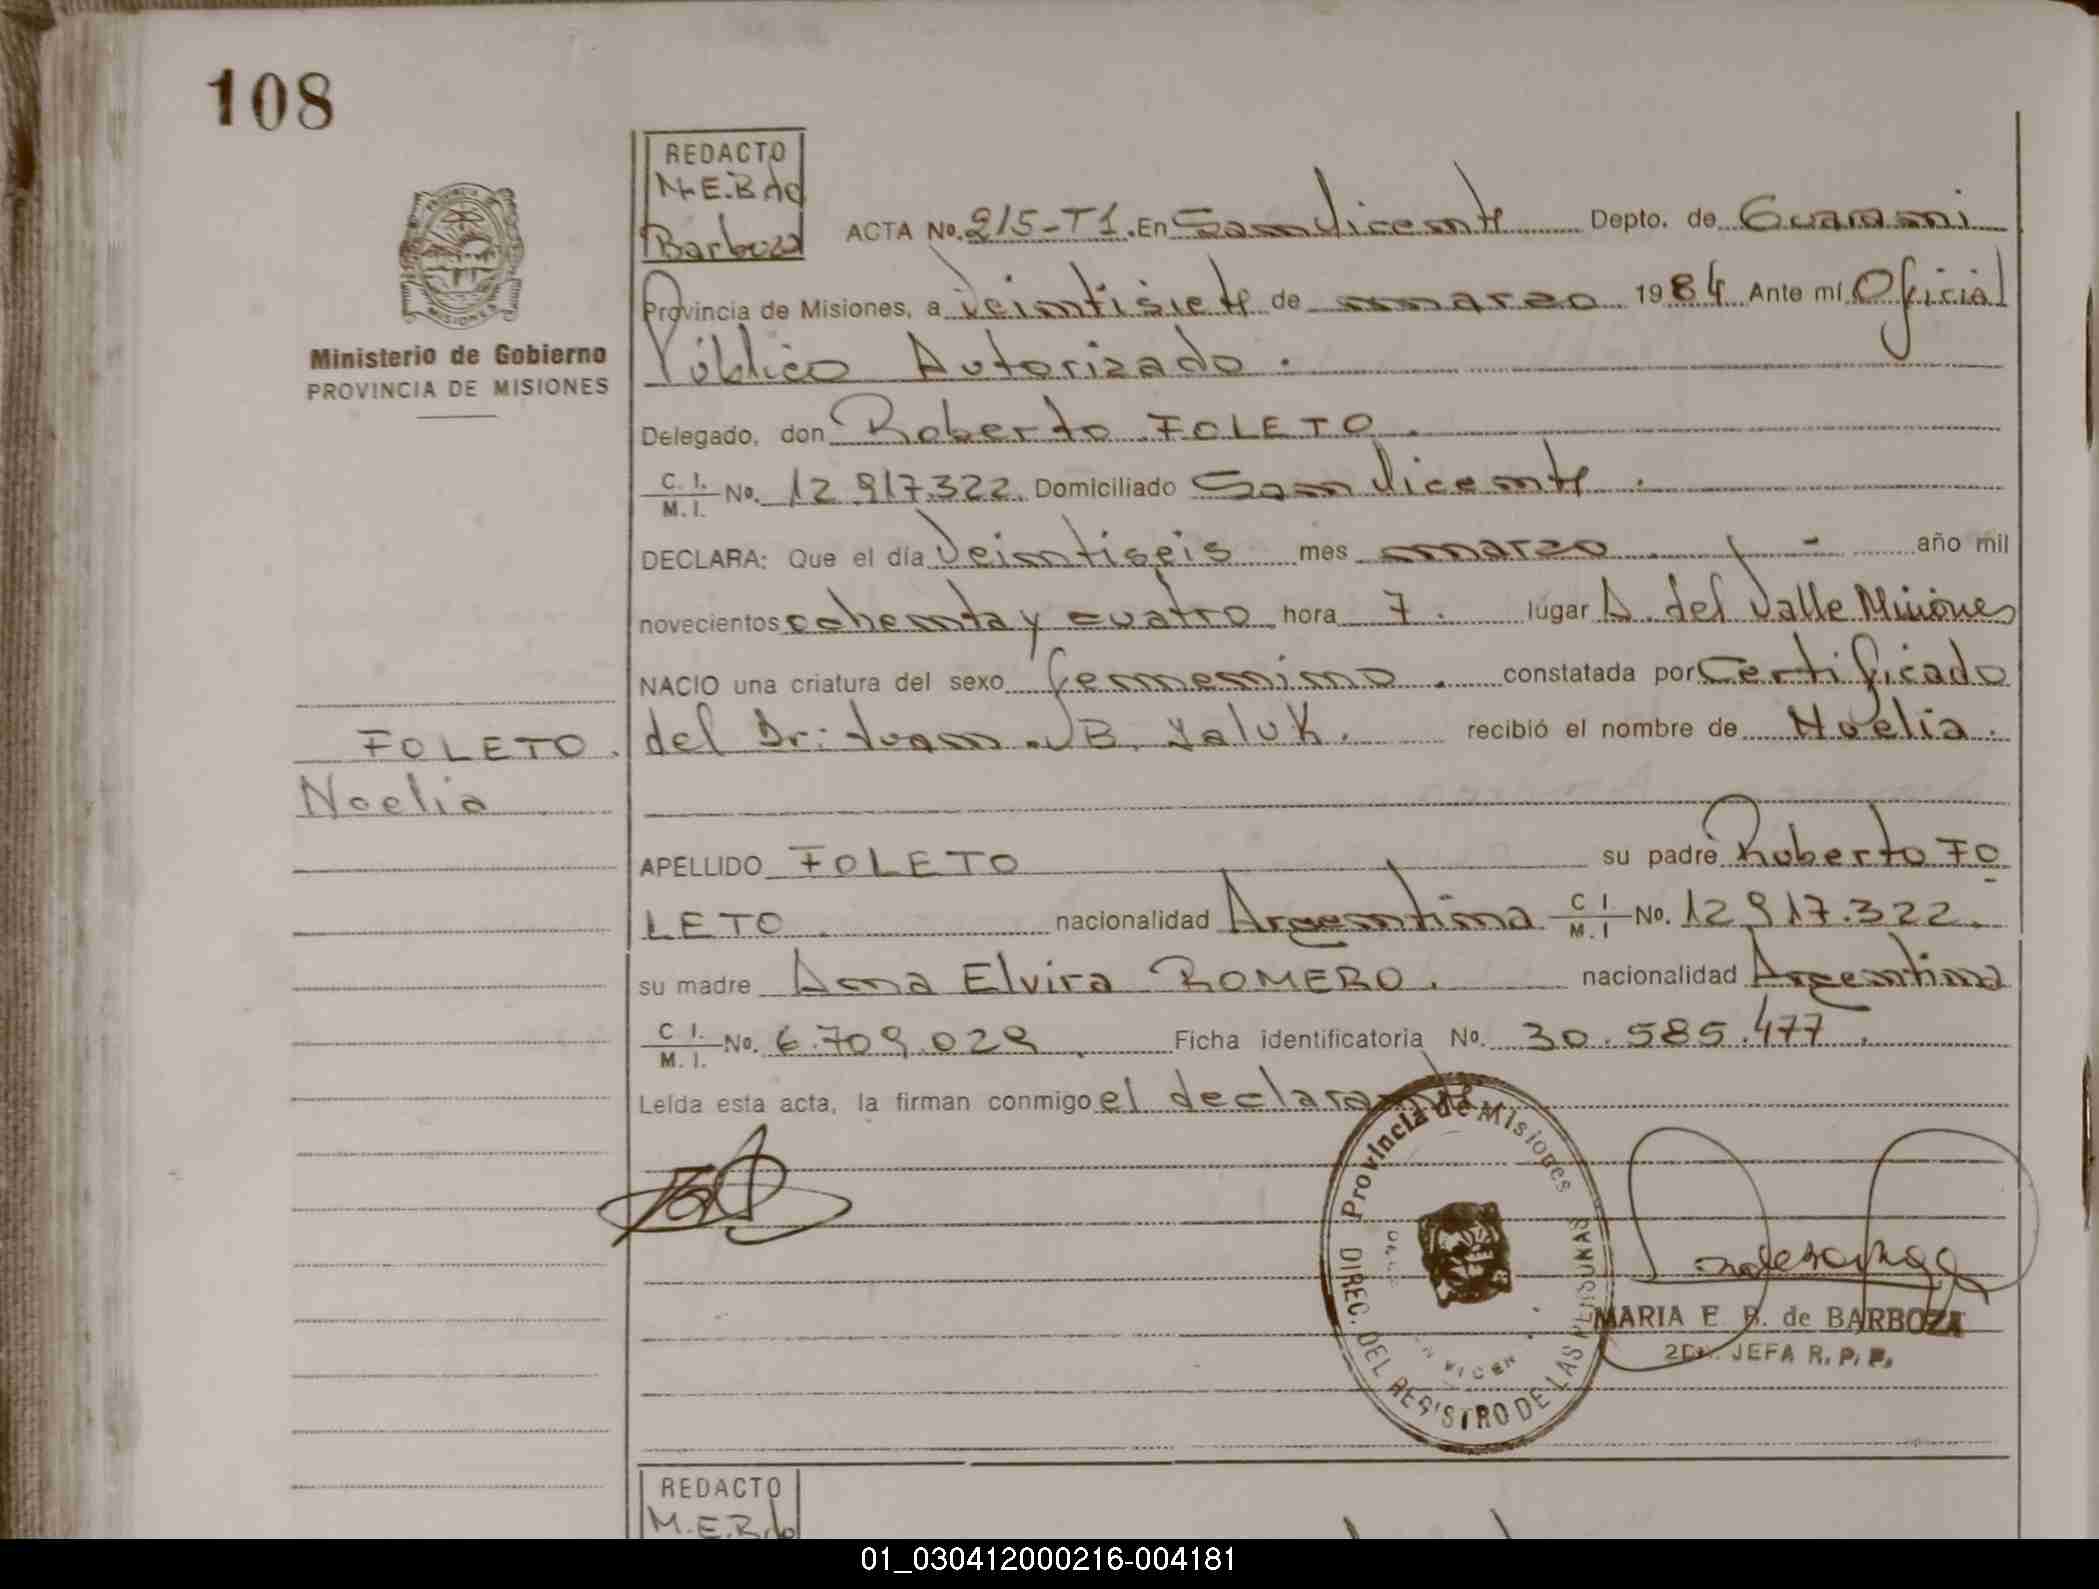 108
REDACTO
M.E.B de
Barboza
ACTA No. 215-T1. En San Vicente Depto. de Guarani
Provincia de Misiones, a veintisiete de marzo 1984 Ante mí Oficial
Público Autorizado.
PROVINCIA DE
MISIONES
Ministerio de Gobierno
PROVINCIA DE MISIONES
Delegado, don Roberto FOLETO.
C. I. / M. I. No. 12.917.322. Domiciliado San Vicente.
DECLARA: Que el día veintiseis mes marzo. - año mil
novecientos ochenta y cuatro hora 7. lugar A. del Valle Misiones
NACIO una criatura del sexo femenino. constatada por Certificado
FOLETO.
del Dr: Juan B. Yaluk. recibió el nombre de Noelia.
Noelia
APELLIDO FOLETO su padre Roberto FO
LETO. nacionalidad Argentina C I. / M. I No. 12.917.322.
su madre Ana Elvira ROMERO. nacionalidad Argentina
C I. / M. I. No. 6.709.029. Ficha identificatoria No. 30.585.477.
Leída esta acta, la firman conmigo el declarante
Provincia de Misiones
DIREC. DEL REGISTRO DE LAS PERSONAS
MARIA E. B. de BARBOZA
2DA. JEFA R. P. P.
REDACTO
M.E.B.de
01_030412000216-004181